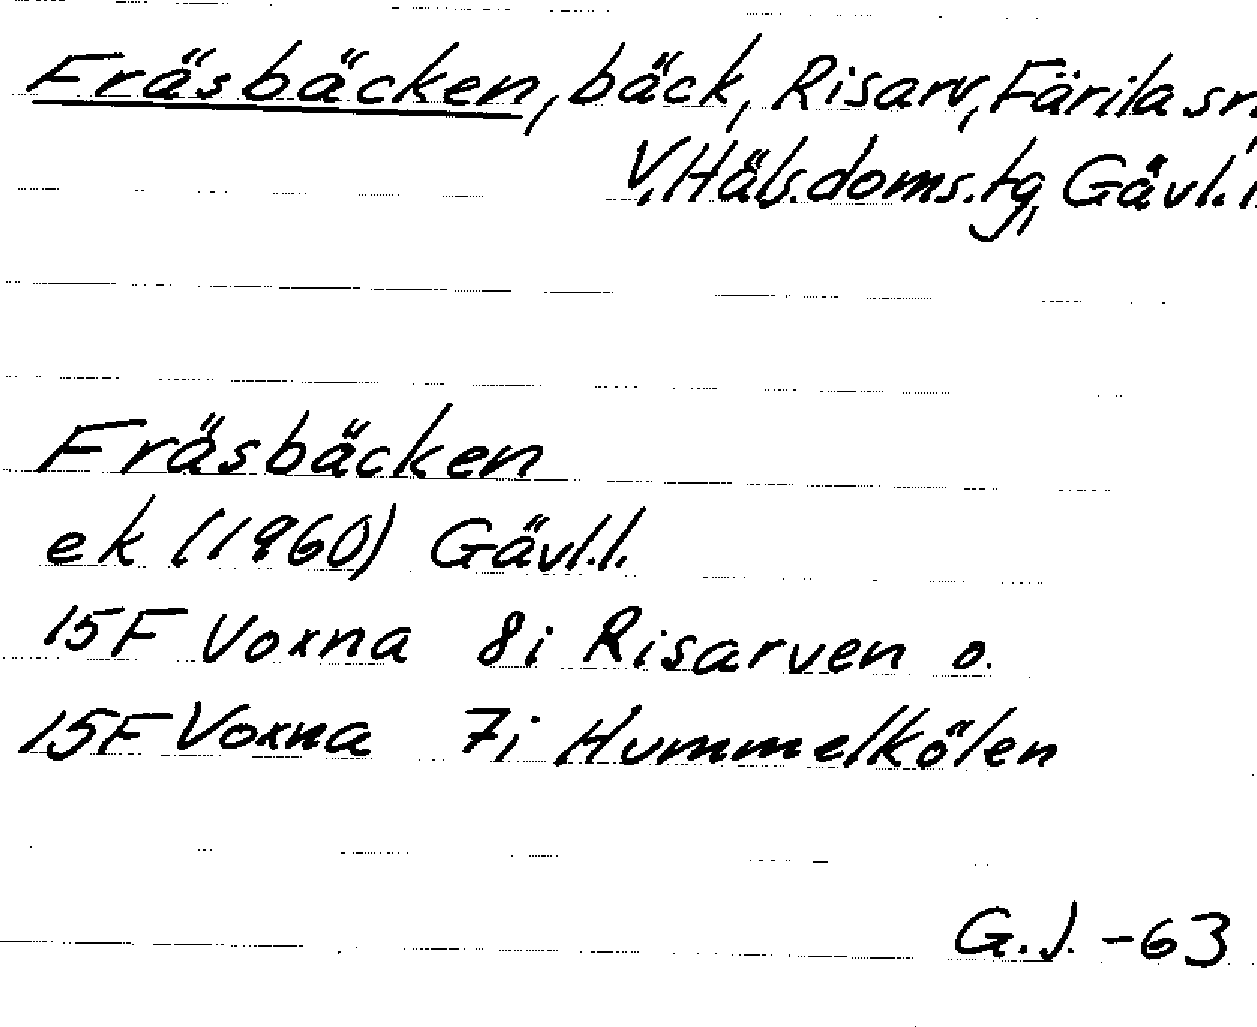 Fräsbäcken, bäck, Risarv, Färila sn,
V. Häls. doms. tg, Gävl. l.
Fräsbäcken
ek (1960) Gävl.l.
15F Voxna 8i Risarven o.
15F Voxna 7i Hummelkölen
G.J. -63